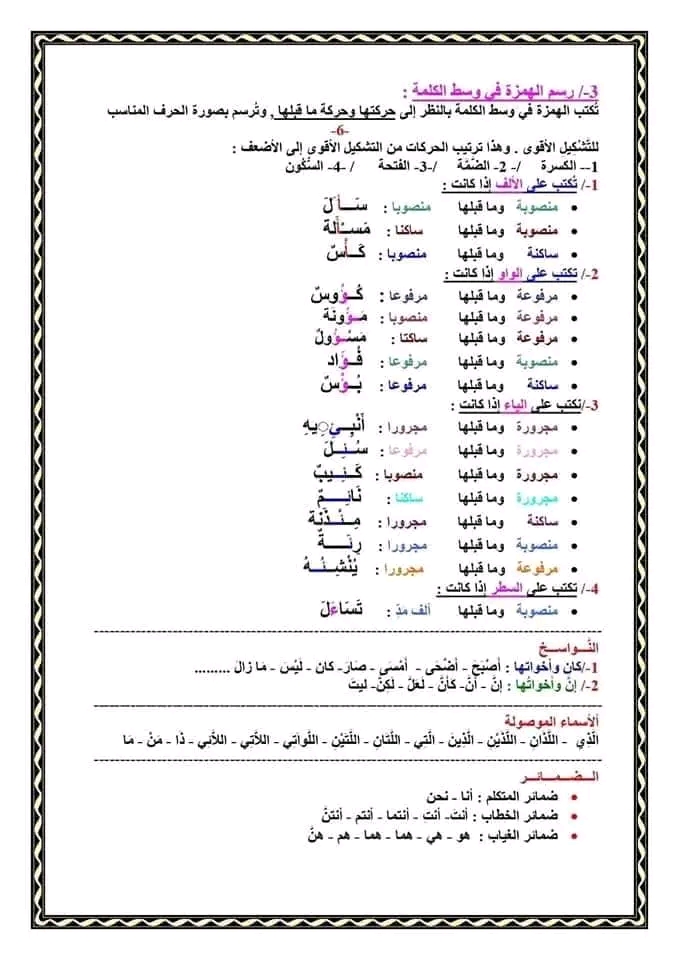 3-/ رسم الهمزة في وسط الكلمة :
تُكتب الهمزة في وسط الكلمة بالنظر إلى حركتها وحركة ما قبلها , وتُرسم بصورة الحرف المناسب
-6-
للتَّشْكيل الأقوى . وهذا ترتيب الحركات من التشكيل الأقوى إلى الأضعف :
1-- الكسرة /- 2- الضَّمَّة /-3- الفتحة / -4- السُّكُون
1-/ تُكتب على الألف إذا كانت :
• منصوبة وما قبلها منصوبا : سَـــأَلَ
• منصوبة وما قبلها ساكنا : مَســْألة
• ساكنة وما قبلها منصوبا : كَــأْسٌ
2-/ تكتب على الواو إذا كانت :
• مرفوعة وما قبلها مرفوعا : كُــؤُوسٌ
• مرفوعة وما قبلها منصوبا : مَــؤُونَة
• مرفوعة وما قبلها ساكنا : مَسْـؤُولٌ
• منصوبة وما قبلها مرفوعا : فُــؤَاد
• ساكنة وما قبلها مرفوعا : بُــؤْسٌ
3-/تكتب على الياء إذا كانت :
• مجرورة وما قبلها مجرورا : أَنْبِــئِـيهِ
• مجرورة وما قبلها مرفوعا : سُــئِــلَ
• مجرورة وما قبلها منصوبا : كَــئِــيبٌ
• مجرورة وما قبلها ساكنا : نَائِــــمٌ
• ساكنة وما قبلها مجرورا : مِــئْــذَنَة
• منصوبة وما قبلها مجرورا : رِئَــــةٌ
• مرفوعة وما قبلها مجرورا : يُنْشِــئُــهُ
4-/ تكتب على السطر إذا كانت :
• منصوبة وما قبلها ألف مدّ : تَسَاءَلَ
النَّـــواســـخ
1-/كان وأخواتها : أصْبَحَ - أضْحَى - أمْسَى - صَارَ- كان - لَيْسَ - مَا زالَ .........
2-/ إنَّ وأخواتُها : إنَّ - أنَّ- كأنَّ - لَعَلَّ - لَكِنَّ- ليتَ
الأسماء الموصولة
الَّذِي - اللَّذَانِ - اللَّذَيْنِ - الَّذِينَ - الَّتِي - اللَّتَانِ - اللَّتَيْنِ - اللَّوَاتي - اللأَتي - اللأَئي - ذَا - مَنْ - مَا
الـــضـــمـــائـــر
• ضمائر المتكلم : أنا - نحن
• ضمائر الخطاب : أنتَ- أنتِ - أنتما - أنتم - أنتنَّ
• ضمائر الغياب : هو - هي - هما - هما - هم - هنَّ